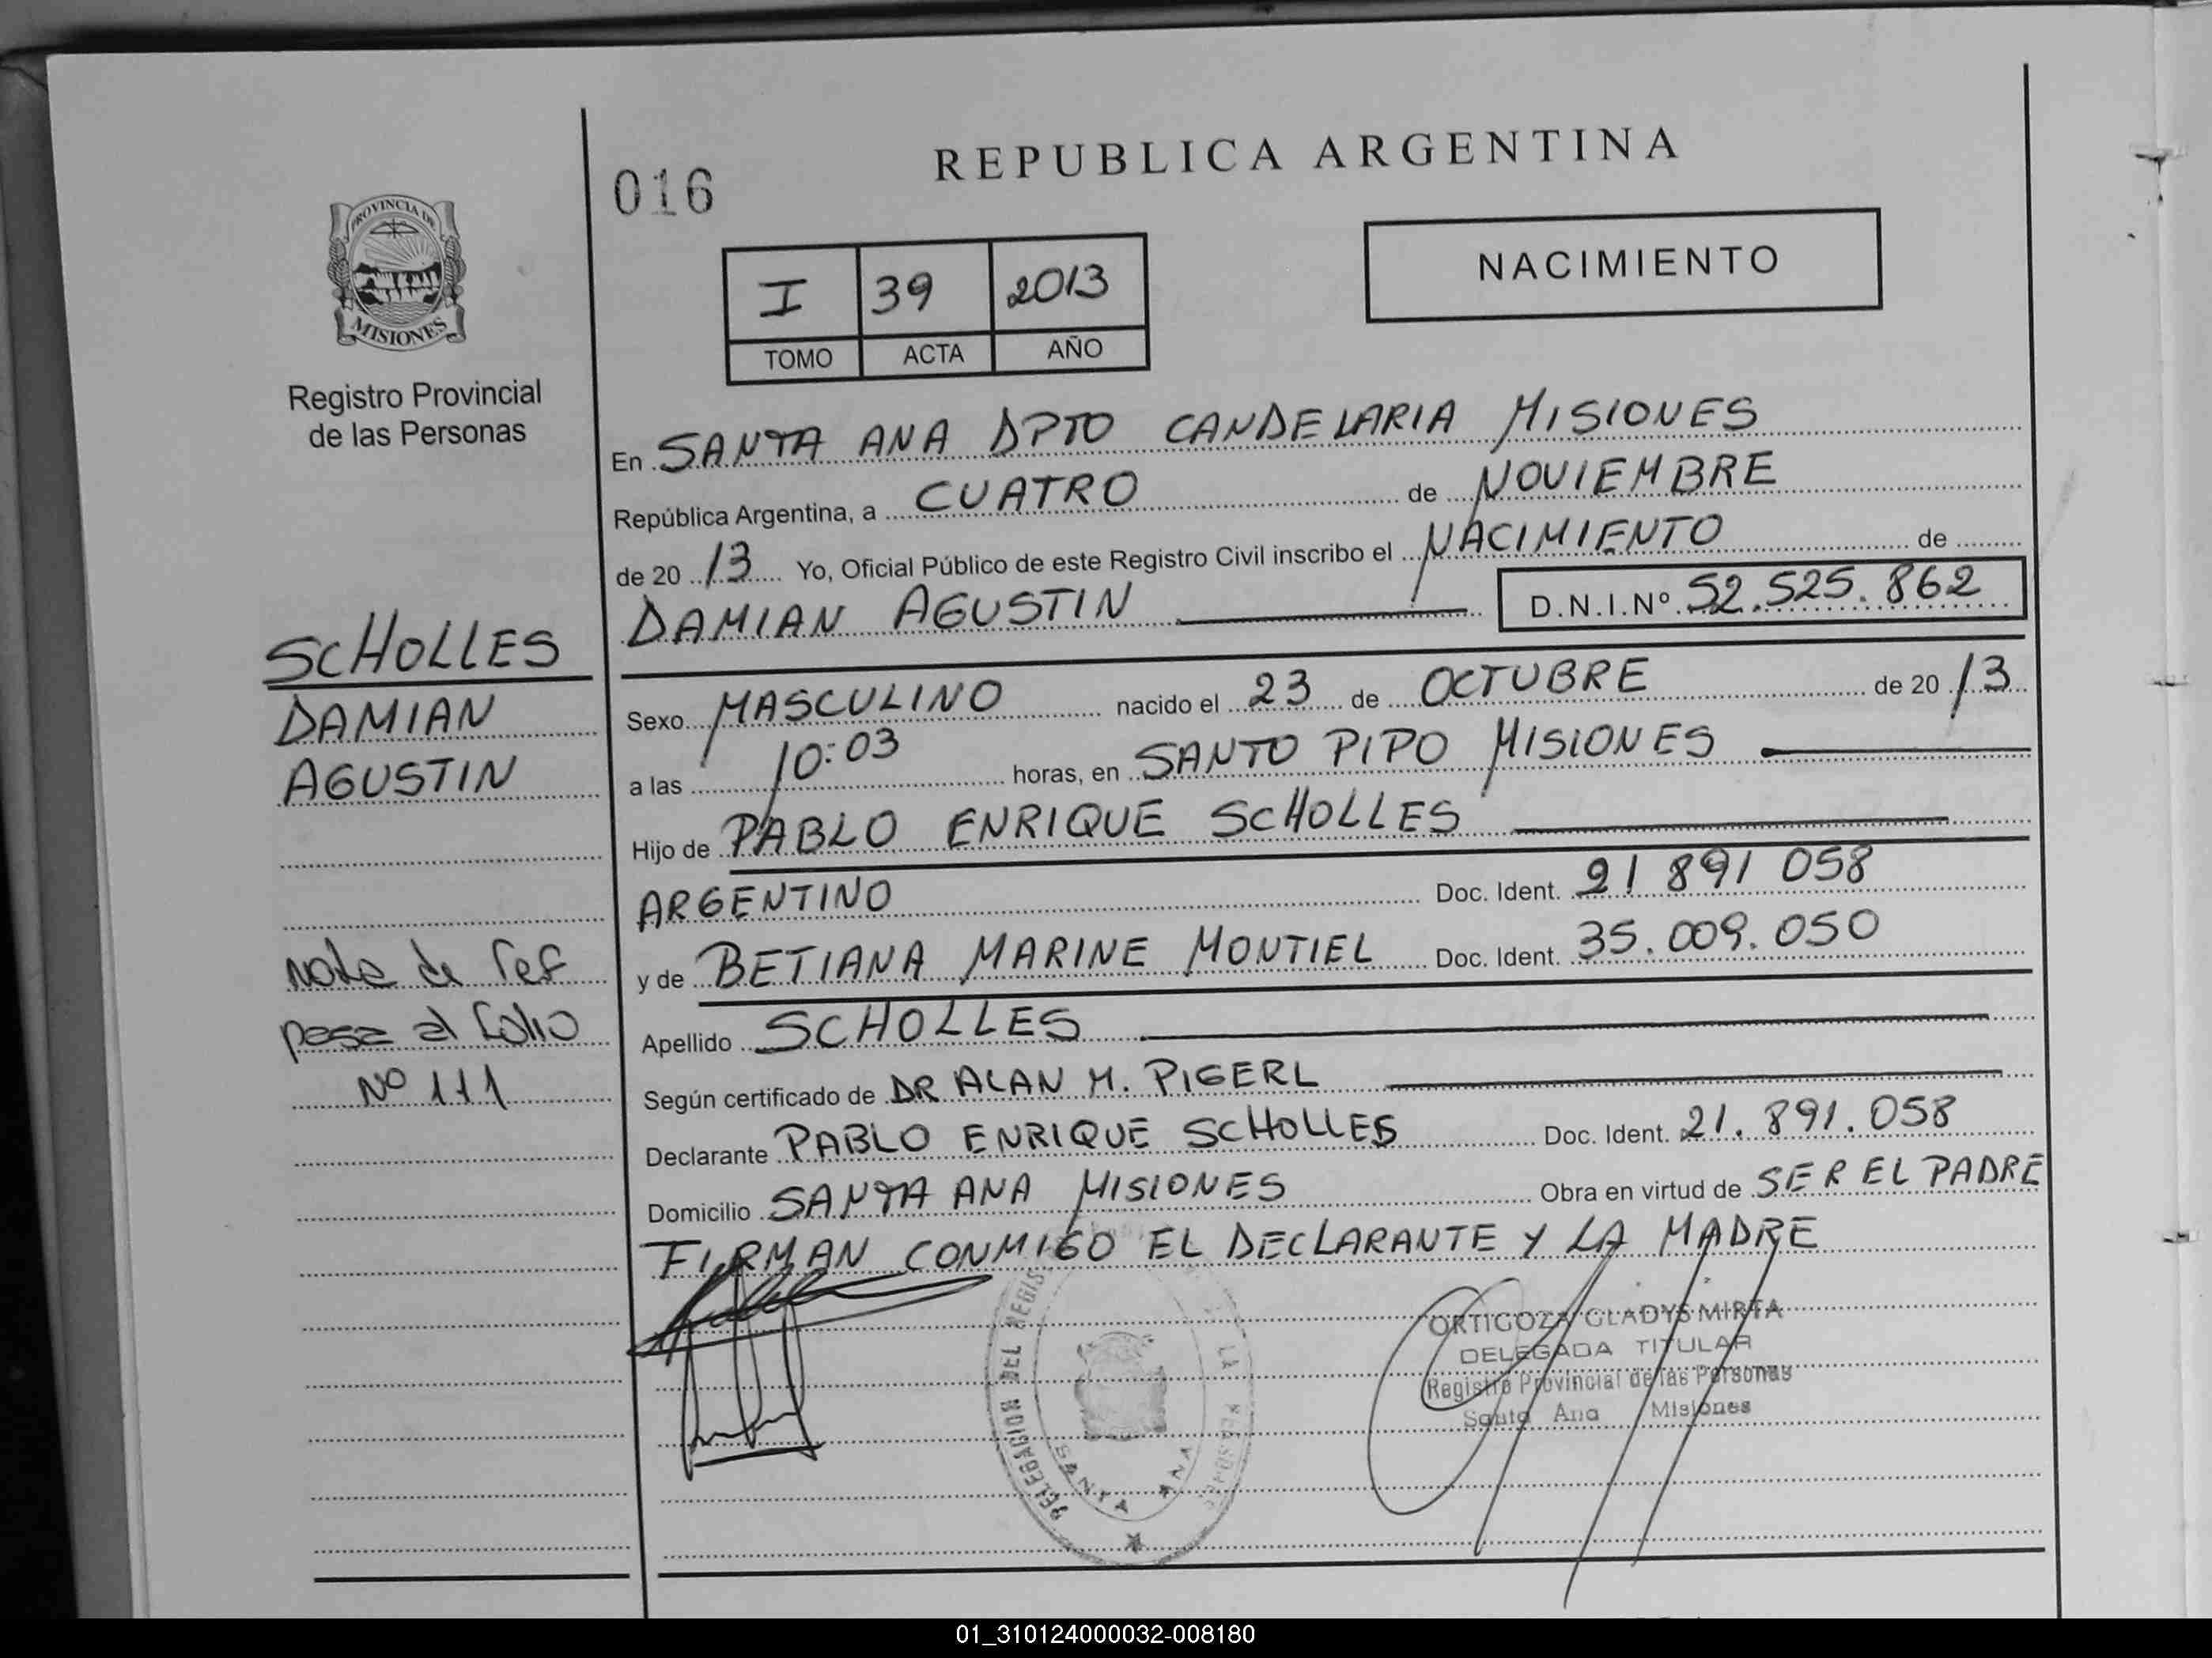 REPUBLICA ARGENTINA
016
PROVINCIA DE
MISIONES
Registro Provincial
de las Personas
I 39 2013
TOMO ACTA AÑO
NACIMIENTO
En SANTA ANA DPTO CANDELARIA MISIONES
República Argentina, a CUATRO de NOVIEMBRE
de 20 13 Yo, Oficial Público de este Registro Civil inscribo el NACIMIENTO de
DAMIAN AGUSTIN D.N.I.Nº 52.525.862
SCHOLLES
DAMIAN
AGUSTIN
Sexo MASCULINO nacido el 23 de OCTUBRE de 20 13
a las 10:03 horas, en SANTO PIPO MISIONES
Hijo de PABLO ENRIQUE SCHOLLES
ARGENTINO Doc. Ident. 21 891 058
y de BETIANA MARINE MONTIEL Doc. Ident. 35.009.050
nota de ref
pasa al folio
Nº 111
Apellido SCHOLLES
Según certificado de DR ALAN M. PIGERL
Declarante PABLO ENRIQUE SCHOLLES Doc. Ident. 21.891.058
Domicilio SANTA ANA MISIONES Obra en virtud de SER EL PADRE
FIRMAN CONMIGO EL DECLARANTE Y LA MADRE
DELEGACION DEL REGIS LA PERSONAS
SANTA ANA
ORTIGOZA GLADYS MIRTA
DELEGADA TITULAR
Registro Provincial de las Personas
Santa Ana Misiones
01_310124000032-008180